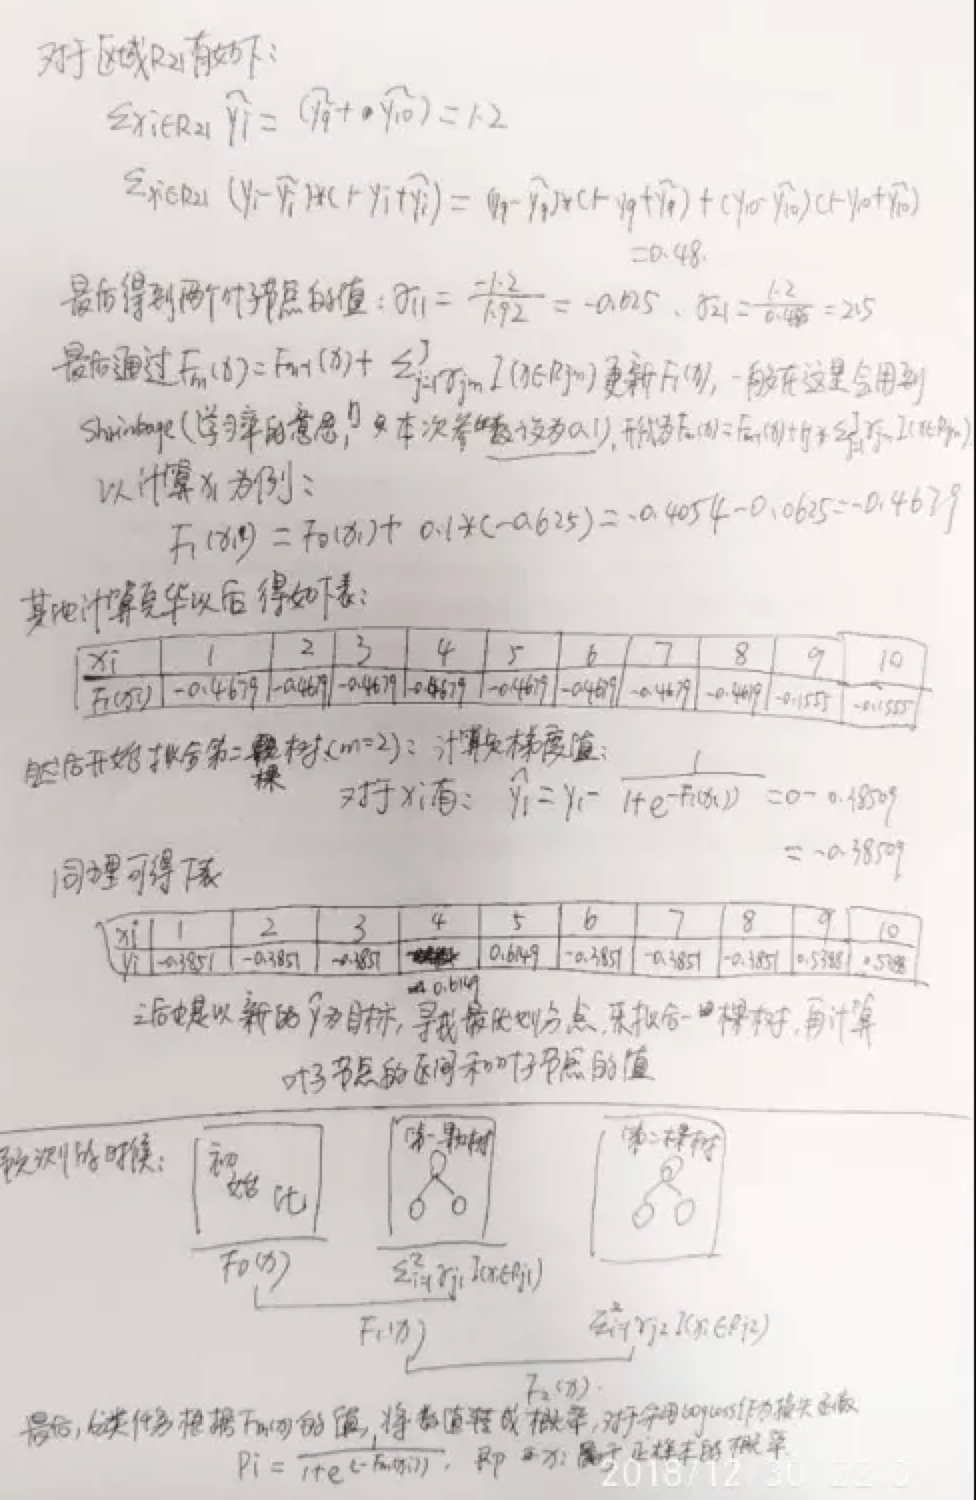 对于区域R21有如下：
Σxi∈R21 ŷi = (ŷ9 + ŷ10) = 1.2
Σxi∈R21 (yi-ŷi)*(1-yi+ŷi) = (y9-ŷ9)*(1-y9+ŷ9)+(y10-ŷ10)(1-y10+ŷ10)
=0.48.
最后得到两个叶子节点的值：γ11 = -1.2/1.92 = -0.625、γ21 = 1.2/0.480 = 2.5
最后通过Fm(x)=Fm-1(x)+ Σj=1^J γjm I(x∈Rjm) 更新F1(x), 一般在这里会用到
Shrinkage(学习率的意思, 本次参数设为0.1), 形式为Fm(x)=Fm-1(x)+η*Σj=1^J γjm I(x∈Rjm)
以计算x1为例：
F1(x1) = F0(x1) + 0.1*(-0.625) = -0.4054-0.0625=-0.4679
其他计算完毕以后得如下表：
xi 1 2 3 4 5 6 7 8 9 10
F1(xi) -0.4679 -0.4679 -0.4679 -0.4679 -0.4679 -0.4679 -0.4679 -0.4679 -0.1555 -0.1555
然后开始拟合第二棵树(m=2)：计算负梯度值：
对于xi有： ŷ1 = y1 - 1/(1+e^-F1(x1)) = 0-0.38509
= -0.38509
同理可得下表
xi 1 2 3 4 5 6 7 8 9 10
ŷi -0.3851 -0.3851 -0.3851 0.6149 0.6149 -0.3851 -0.3851 -0.3851 0.5388 0.5388
之后也是以新的ŷ为目标, 寻找最优划分点, 来拟合一棵树, 再计算
叶子节点的区间和叶子节点的值
预测的时候：
初始化 第一颗树 第二棵树
F0(x) Σi=1^2 γj1 I(x∈Rj1)
F1(x) Σi=1^2 γj2 I(xi∈Rj2)
F2(x).
最后, 分类任务根据Fm(x)的值, 将数值转成概率, 对于采用logloss作为损失函数
Pi = 1/(1+e^(-Fm(xi))), 即P xi属于正样本的概率
2018/12/30 22:0